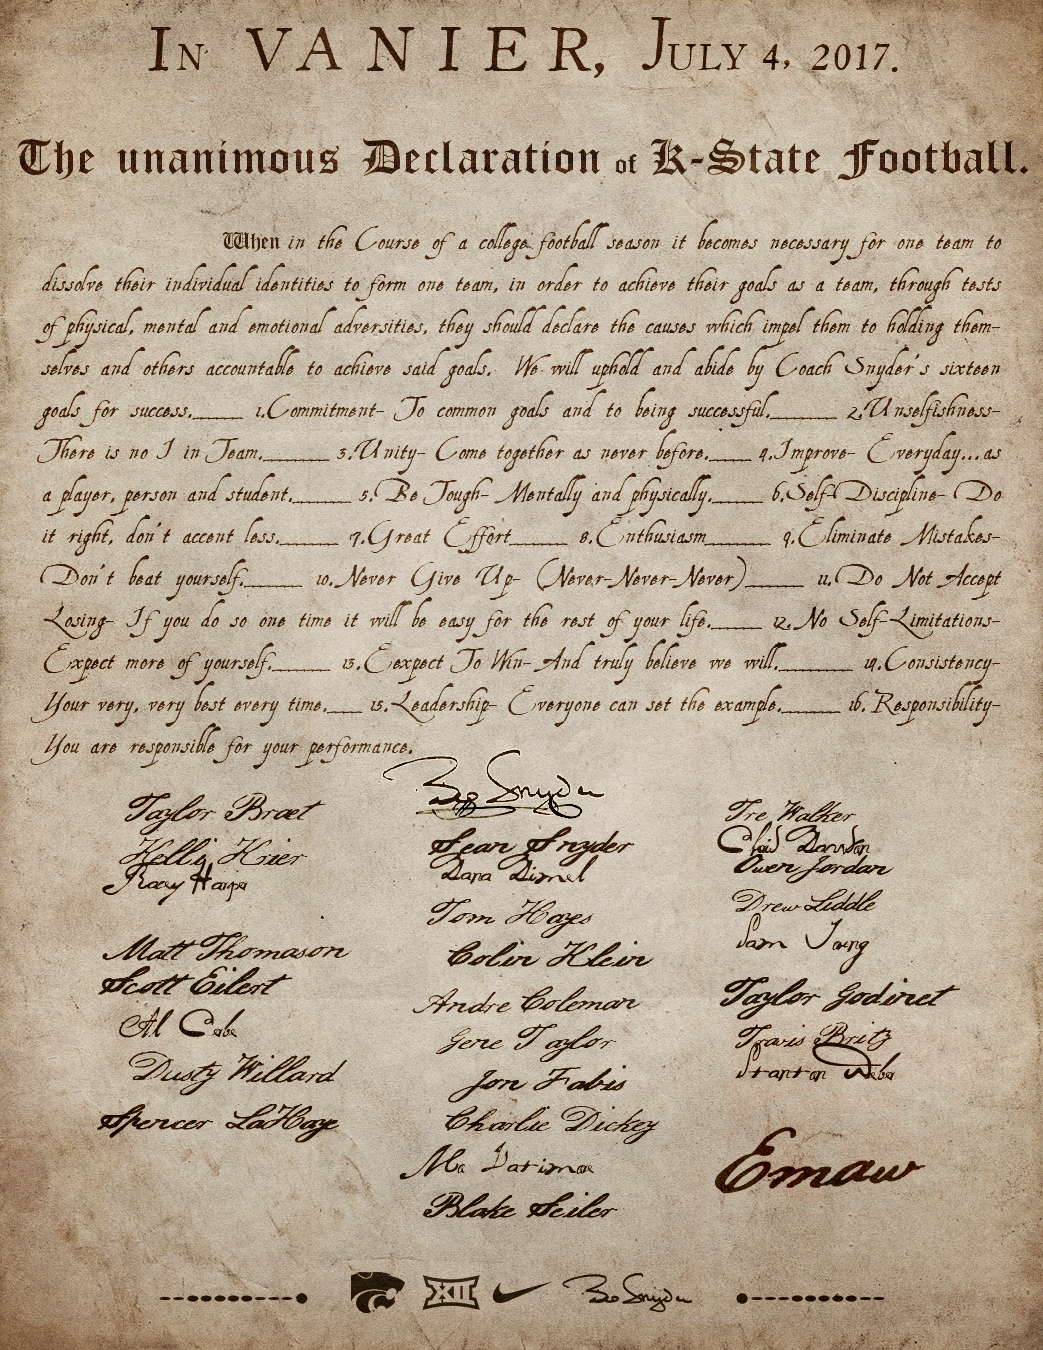 In VANIER, July 4, 2017.
The unanimous Declaration of K-State Football.
When in the Course of a college football season it becomes necessary for one team to
dissolve their individual identities to form one team, in order to achieve their goals as a team, through tests
of physical, mental and emotional adversities, they should declare the causes which impel them to holding them-
selves and others accountable to achieve said goals. We will uphold and abide by Coach Snyder's sixteen
goals for success.____ 1.Commitment- To common goals and to being successful.____ 2.Unselfishness-
There is no I in Team.____ 3.Unity- Come together as never before.____ 4.Improve- Everyday...as
a player, person and student.____ 5.Be Tough- Mentally and physically.____ 6.Self-Discipline- Do
it right, don't accent less.____ 7.Great Effort____ 8.Enthusiasm____ 9.Eliminate Mistakes-
Don't beat yourself.____ 10.Never Give Up- (Never-Never-Never)____ 11.Do Not Accept
Losing- If you do so one time it will be easy for the rest of your life.____ 12.No Self-Limitations-
Expect more of yourself.____ 13.Eexpect To Win- And truly believe we will.____ 14.Consistency-
Your very, very best every time.____ 15.Leadership- Everyone can set the example.____ 16.Responsibility-
You are responsible for your performance.
Bill Snyder
Taylor Braet
Kelli Krier
Matt Thomason
Scott Eilert
Al Cobe
Dusty Willard
Spencer LaHaye
Sean Snyder
Dana Dimel
Tom Hayes
Collin Klein
Andre Coleman
Gene Taylor
Jon Fabis
Charlie Dickey
Blake Seiler
Tre Walker
Owen Jordan
Drew Liddle
Sam Young
Taylor Godinet
Travis Britz
Stanton Weber
Emaw
XII
Bill Snyder